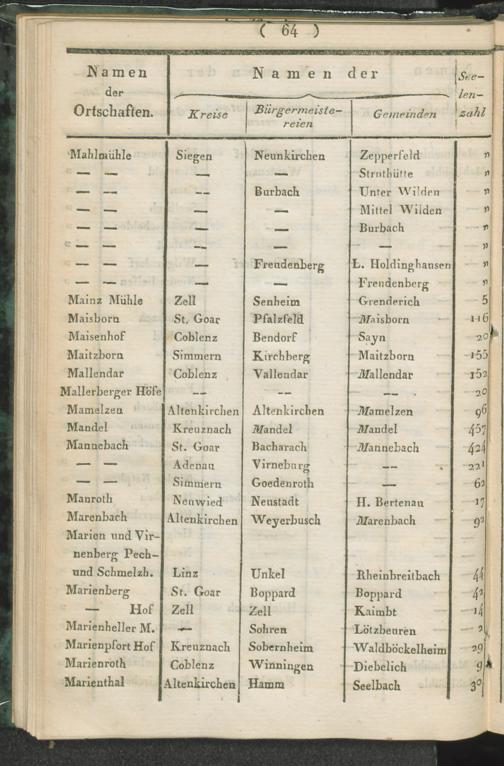 ( 64 )
Namen der Ortschaften. | Namen der | Seelenzahl
Kreise | Bürgermeistereien | Gemeinden
Mahlmühle | Siegen | Neunkirchen | Zepperfeld | "
— — | — | — | Struthütte | "
— — | — | Burbach | Unter Wilden | "
— — | — | — | Mittel Wilden | "
— — | — | — | Burbach | "
— — | — | — | — | "
— — | — | Freudenberg | L. Holdinghausen | "
— — | — | — | Freudenberg | "
Mainz Mühle | Zell | Senheim | Grenderich | 5
Maisborn | St. Goar | Pfalzfeld | Maisborn | 116
Maisenhof | Coblenz | Bendorf | Sayn | 20
Maitzborn | Simmern | Kirchberg | Maitzborn | 155
Mallendar | Coblenz | Vallendar | Mallendar | 152
Mallerberger Höfe | — | — | — | 20
Mamelzen | Altenkirchen | Altenkirchen | Mamelzen | 96
Mandel | Kreuznach | Mandel | Mandel | 457
Mannebach | St. Goar | Bacharach | Mannebach | 424
— — | Adenau | Virneburg | — | 221
— — | Simmern | Goedenroth | — | 62
Manroth | Neuwied | Neustadt | H. Bertenau | 17
Marenbach | Altenkirchen | Weyerbusch | Marenbach | 92
Marien und Vir-
nenberg Pech-
und Schmelzh. | Linz | Unkel | Rheinbreitbach | 44
Marienberg | St. Goar | Boppard | Boppard | 42
— Hof | Zell | Zell | Kaimbt | 14
Marienheller M. | — | Sohren | Lötzbeuren | 2
Marienpfort Hof | Kreuznach | Sobernheim | Waldböckelheim | 29
Marienroth | Coblenz | Winningen | Diebelich | 9
Marienthal | Altenkirchen | Hamm | Seelbach | 30